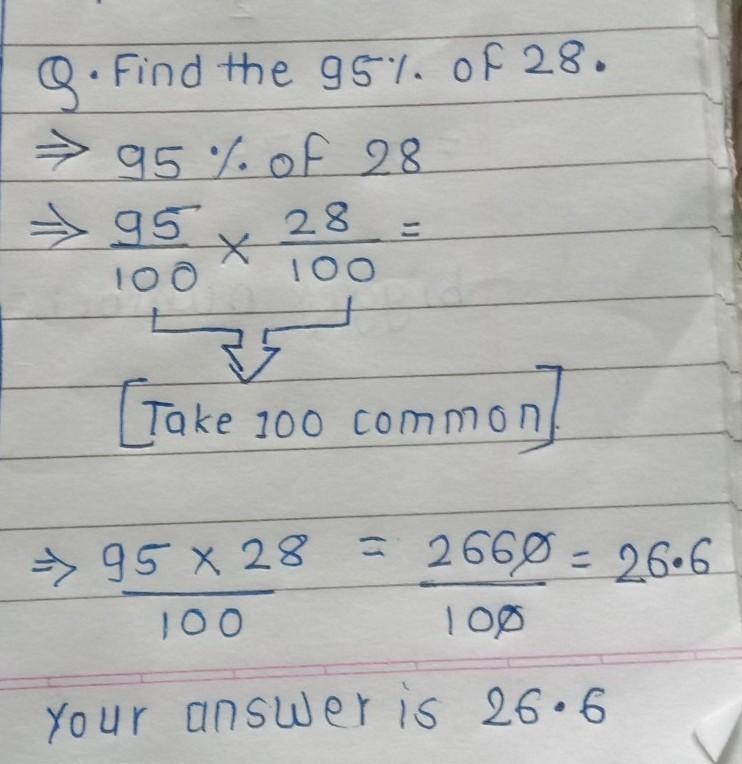 Q. Find the 95% of 28.
⇒ 95% of 28
⇒ 95/100 × 28/100 =
[Take 100 common].
⇒ 95 × 28/100 = 2660/100 = 26.6
Your answer is 26.6